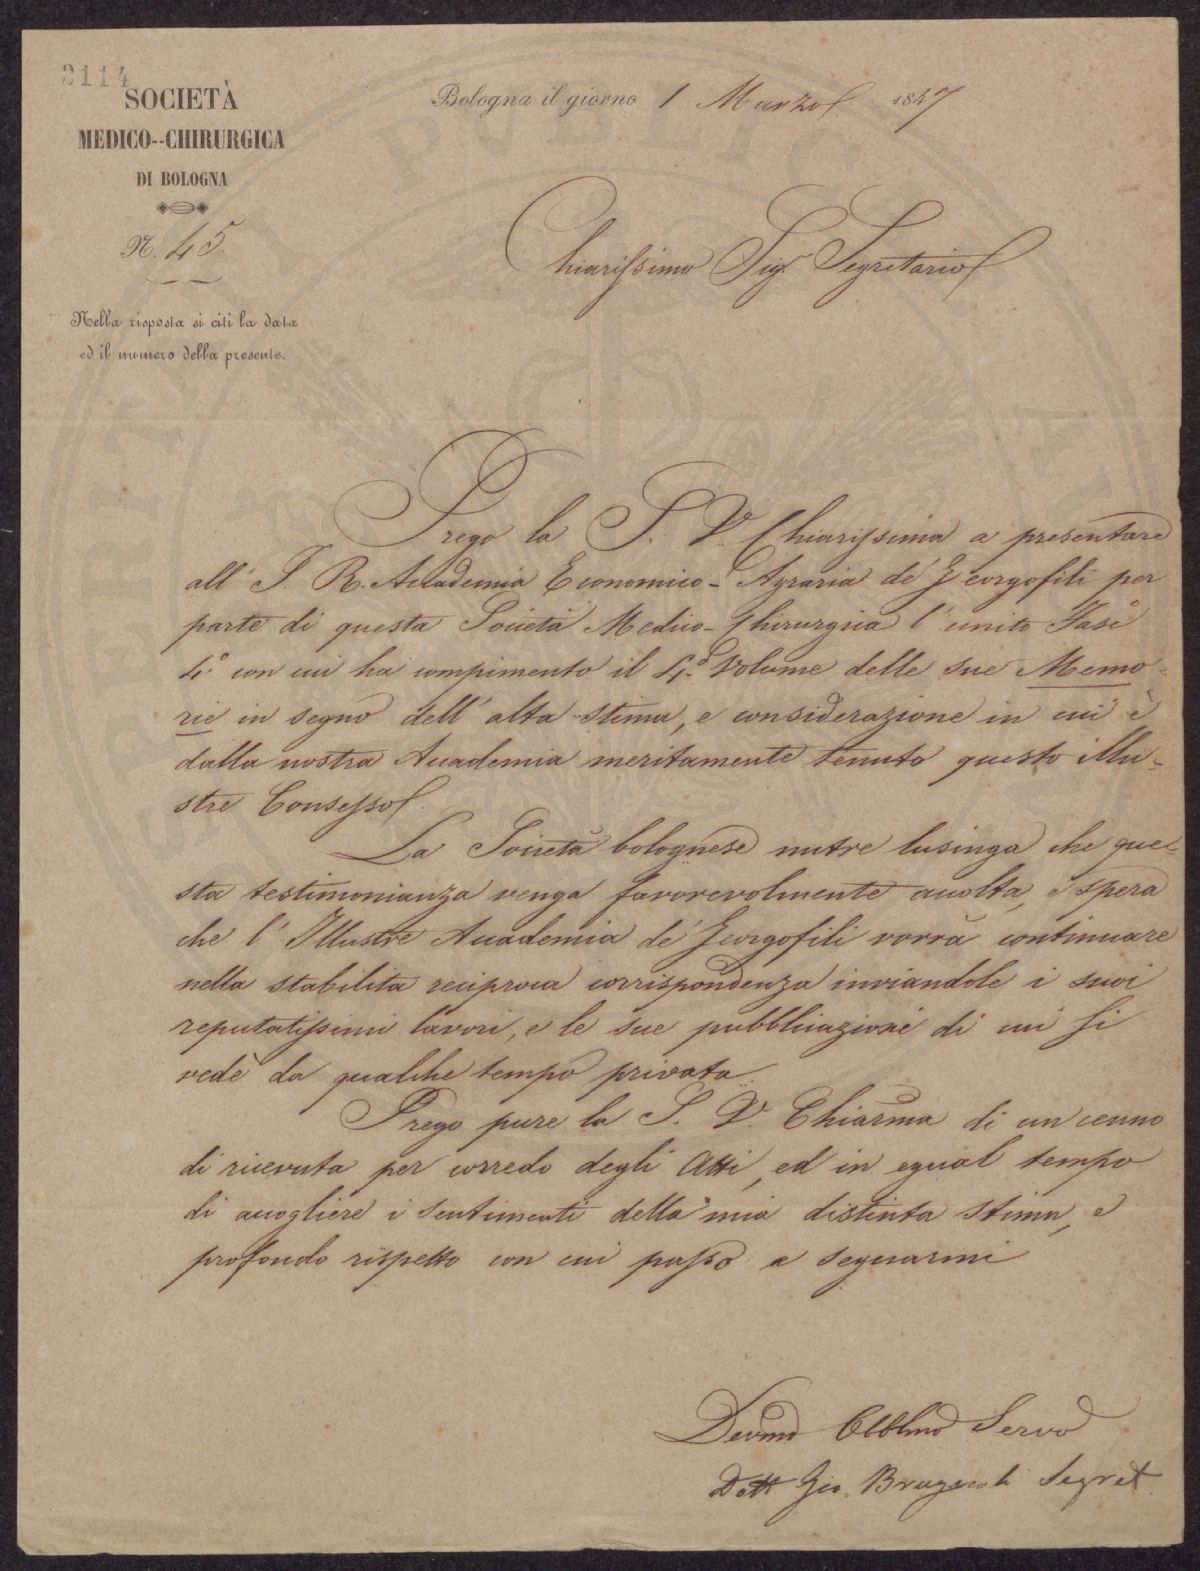 3114
SOCIETÀ
MEDICO--CHIRURGICA
DI BOLOGNA
N. 45
Nella risposta si citi la data
ed il numero della presente.
Bologna il giorno 1 Marzo 1847
Chiarissimo Sig.r Segretario
Prego la S. V. Chiarissima a presentare
all' I. R. Accademia Economico-Agraria de' Georgofili per
parte di questa Società Medico-Chirurgica l' unito Fasc.o
4.o con cui ha compimento il 4.o Volume delle sue Memo-
rie in segno dell' alta stima, e considerazione in cui è
dalla nostra Accademia meritamente tenuto questo illu-
stre Consesso.
La Società bolognese nutre lusinga che que-
sta testimonianza venga favorevolmente accolta, e spera
che l' Illustre Accademia de' Georgofili vorrà continuare
nella stabilita reciproca corrispondenza inviandole i suoi
reputatissimi lavori, e le sue pubblicazioni di cui si
vede da qualche tempo privata.
Prego pure la S. V. Chiarma di un cenno
di ricevuta per corredo degli Atti, ed in egual tempo
di accogliere i sentimenti della mia distinta stima, e
profondo rispetto con cui passo a segnarmi
Devmo Obblmo Servo
Dott Gio. Brugnoli Segret.
PVBLIC